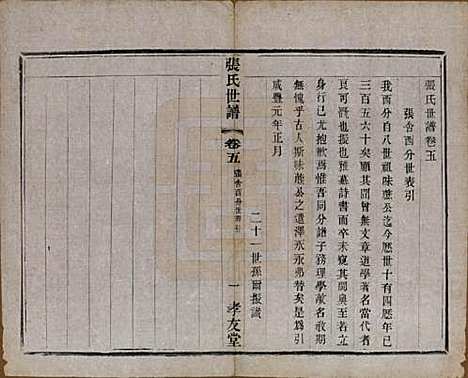 張氏世譜卷五
張舍西分世表引
我西分自八世祖味蔗公迄今歷世十有四歷年已
三百五六十矣顧其間曾無文章道學著名當代者
良可慨焉雅墓詩書而卒未窺其閫奧至若
身行已尤抱歉焉惟吾同分譜子務理學敵名教期
無愧乎古人斯味蔗公之遺澤永永弗替矣是為引
咸豐元年正月
二十一世孫爾振識
張氏世譜
卷五
張舍西分世表引
一
孝友堂